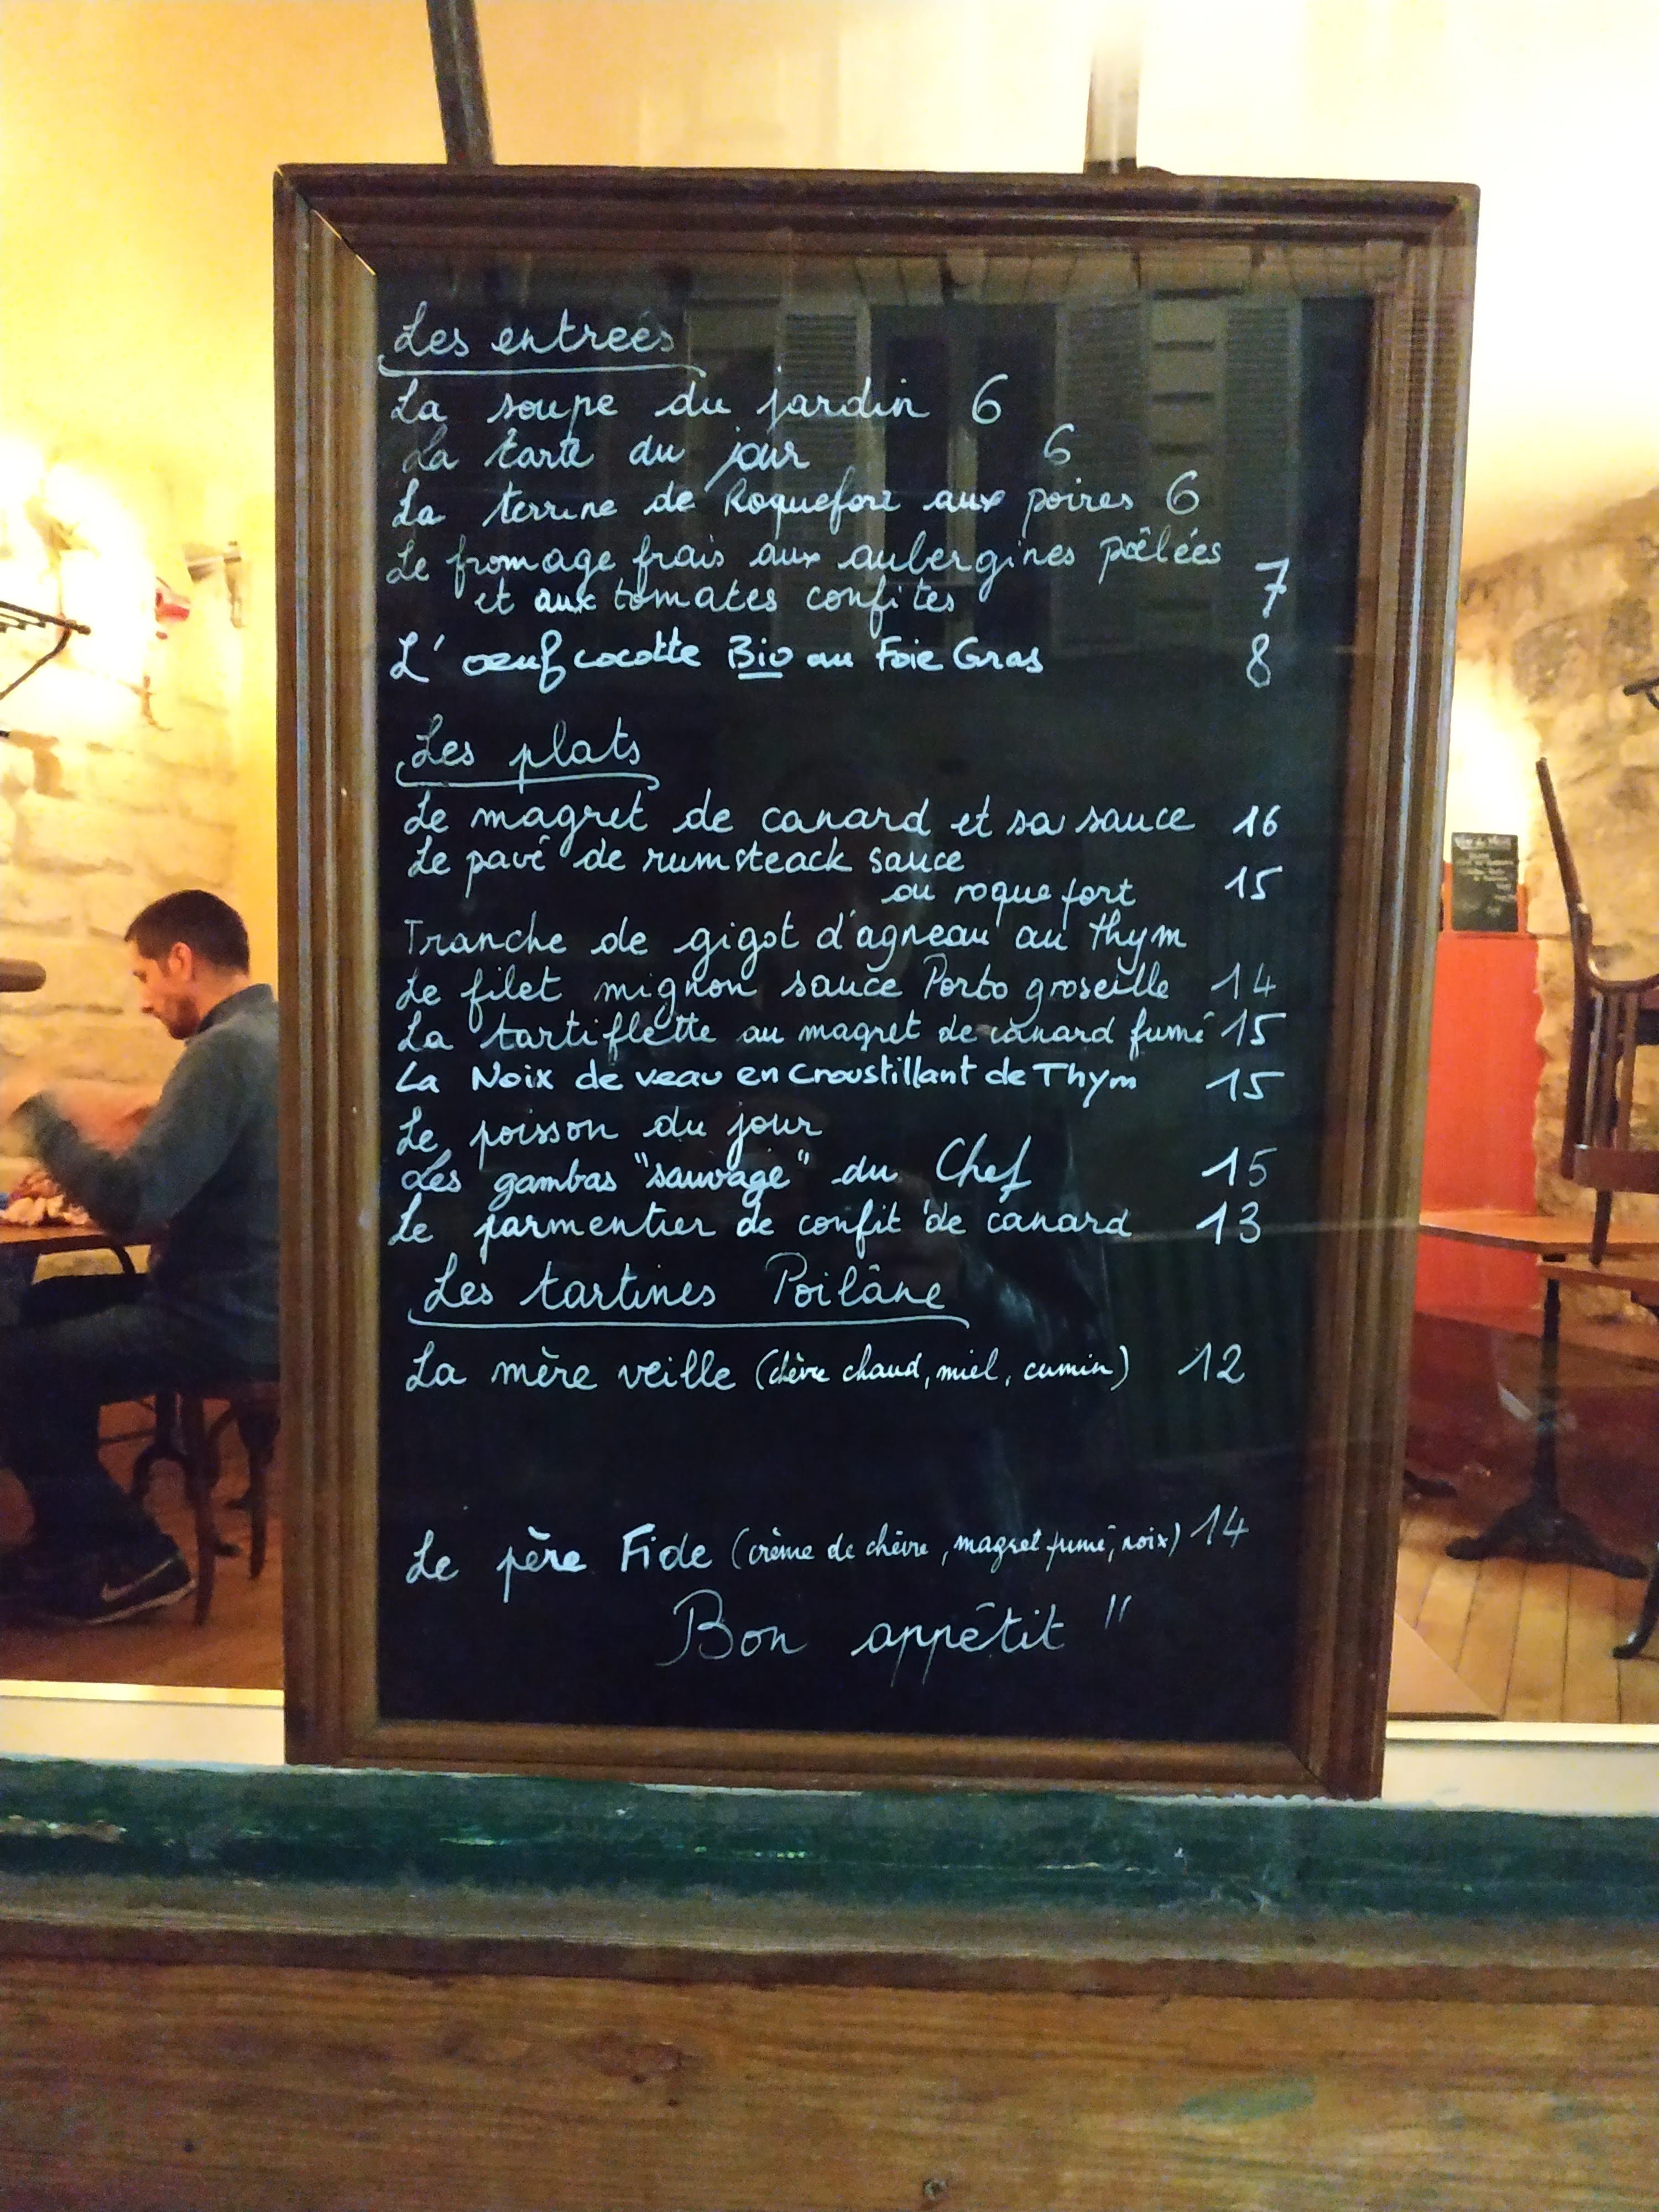 Les entrées
La soupe du jardin 6
La tarte du jour 6
La terrine de Roquefort aux poires 6
Le fromage frais aux aubergines poêlées
et aux tomates confites 7
L' œuf cocotte Bio au Foie Gras 8
Les plats
Le magret de canard et sa sauce 16
Le pavé de rumsteack sauce
au roquefort 15
Tranche de gigot d'agneau au thym
Le filet mignon sauce Porto groseille 14
La tartiflette au magret de canard fumé 15
La Noix de veau en Croustillant de Thym 15
Le poisson du jour
Les gambas "sauvage" du Chef 15
Le parmentier de confit de canard 13
Les tartines Poilâne
La mère veille (chèvre chaud, miel, cumin) 12
Le père Fide (crème de chèvre, magret fumé, noix) 14
Bon appétit !!